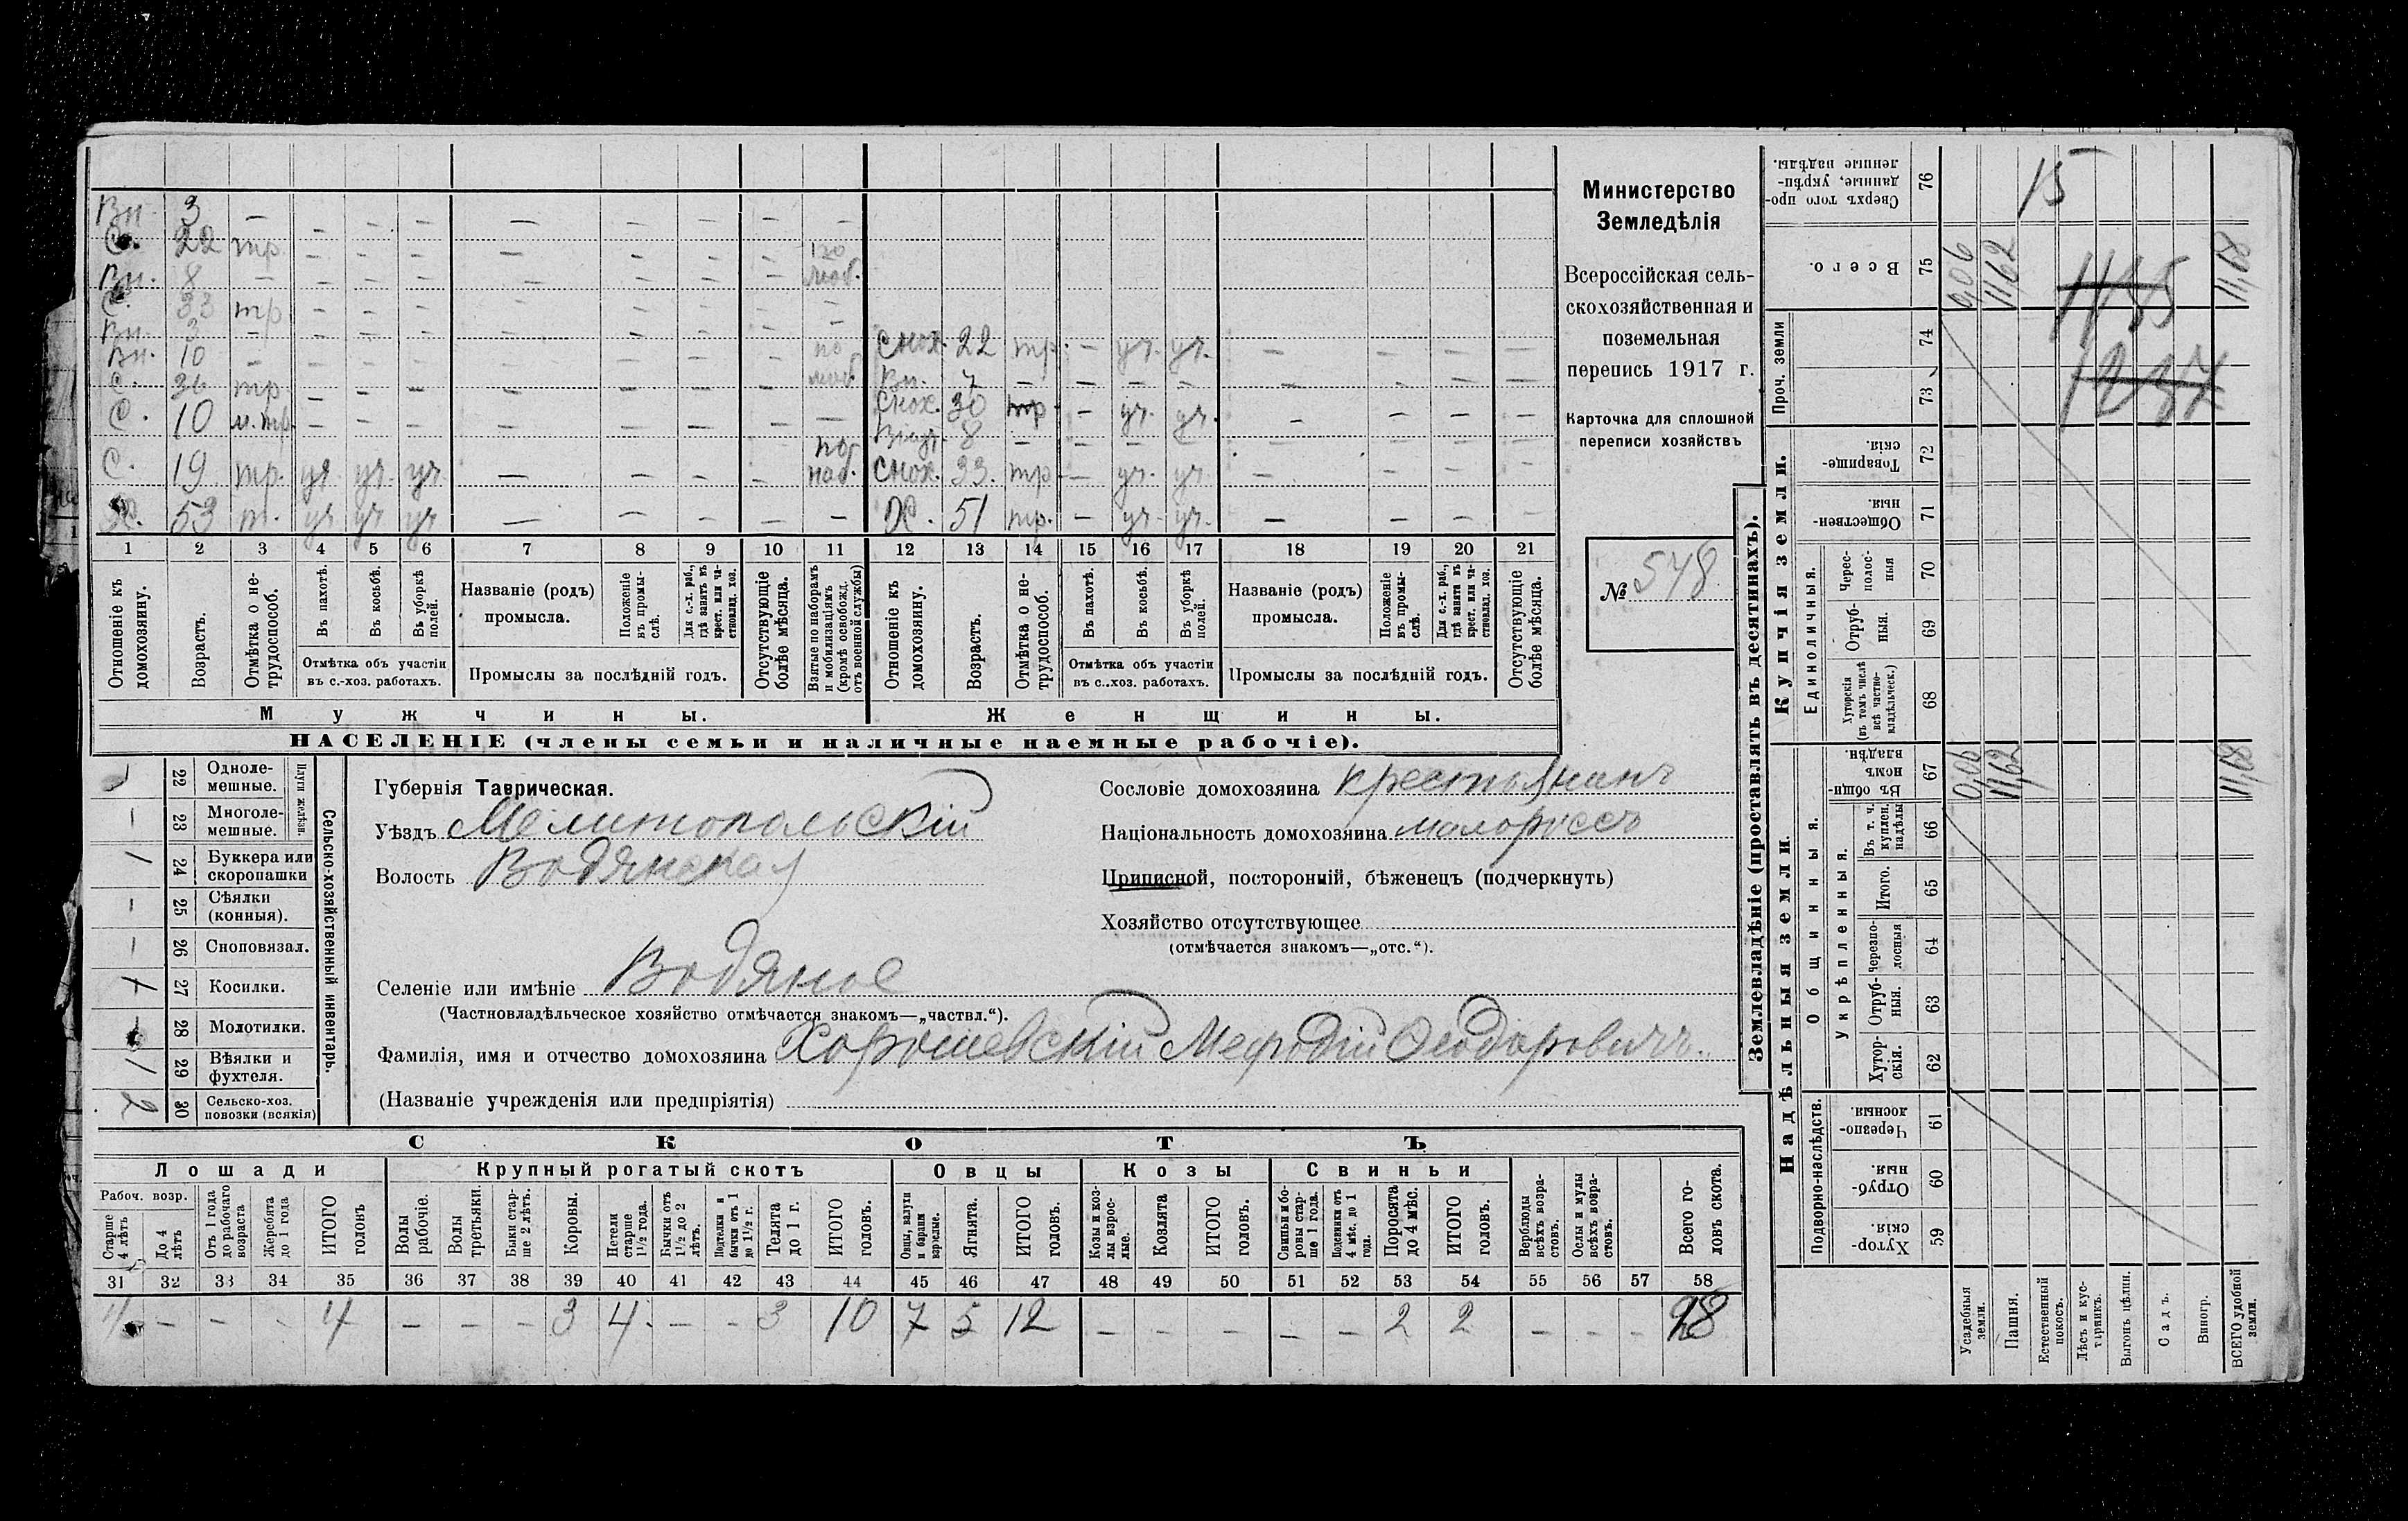 Вн. 3 — — — — — — — — —
С. 22 тр. — — — — — — — по моб.
Вн. 8 — — — — — — — —
С. 33 тр — — — — — — — —
Вн. 3 — — — — — — — —
Вн. 10 — — — — — — — — по моб. Снох. 22 тр. — уч. уч. — — — —
С. 36 тр — — — — — — — Вн. 7 — — — — — — — —
С. 10 н. тр. — — — — — — — — Снох. 30 тр. — уч. уч. — — — —
Внуч. 8 — — — — — — — —
С. 19 тр. уч. уч. уч. — — — — по наб. Снох. 33. тр — уч. уч. — — — —
Х. 53 т. уч уч уч — — — — — Х. 51 тр. — уч. уч. — — — —
1 2 3 4 5 6 7 8 9 10 11 12 13 14 15 16 17 18 19 20 21
Отношеніе къ домохозяину.
Возрастъ.
Отмѣтка о нетрудоспособ.
Въ пахотѣ.
Въ косьбѣ.
Въ уборкѣ полей.
Отмѣтка объ участіи
въ с.-хоз. работахъ.
Названіе (родъ)
промысла.
Положеніе въ промыслѣ.
Для с.-х. раб., гдѣ занятъ въ крест. или частновлад. хоз.
Промыслы за послѣдній годъ.
Отсутствующіе болѣе мѣсяца.
Взятые по наборамъ и мобилизаціямъ (кромѣ освобожд. отъ военной службы)
Отношеніе къ домохозяину.
Возрастъ.
Отмѣтка о нетрудоспособ.
Въ пахотѣ.
Въ косьбѣ.
Въ уборкѣ полей.
Отмѣтка объ участіи
въ с..хоз. работахъ.
Названіе (родъ)
промысла.
Положеніе въ промыслѣ.
Для с.-х. раб., гдѣ занята въ крест. или частновлад. хоз.
Промыслы за послѣдній годъ.
Отсутствующіе болѣе мѣсяца.
Мужчины. Женщины.
НАСЕЛЕНІЕ (члены семьи и наличные наемные рабочіе).
Министерство
Земледѣлія
Всероссійская сель-
скохозяйственная и
поземельная
перепись 1917 г.
Карточка для сплошной
переписи хозяйствъ
№ 548
Сельско-хозяйственный инвентарь.
Плуги желѣзн.
22 Одноле-
мешные.
— 23 Многоле-
мешные.
1 24 Буккера или
скоропашки
— 25 Сѣялки
(конныя).
— 26 Сноповязал.
27 Косилки.
28 Молотилки.
1 29 Вѣялки и
фухтеля.
2 30 Сельско-хоз.
повозки (всякія)
Губернія Таврическая.
Уѣздъ Мелитопольскій
Волость Водянская
Сословіе домохозяина крестьянинъ
Національность домохозяина малороссъ
Приписной, посторонній, бѣженецъ (подчеркнуть)
Хозяйство отсутствующее
(отмѣчается знакомъ—„отс.“).
Селеніе или имѣніе Водяное
(Частновладѣльческое хозяйство отмѣчается знакомъ—„частвл.“).
Фамилія, имя и отчество домохозяина Хорошевскій Мефодій Ѳеодоровичъ.
(Названіе учрежденія или предпріятія)
СКОТЪ
Лошади Крупный рогатый скотъ Овцы Козы Свиньи
Рабоч. возр.
Старше 4 лѣтъ
До 4 лѣтъ
Отъ 1 года до рабочаго возраста
Жеребята до 1 года
ИТОГО головъ
Волы рабочіе.
Волы третьяки.
Быки старше 2 лѣтъ.
Коровы.
Нетели старше 1½ года.
Бычки отъ 1½ до 2 лѣтъ.
Подтелки и бычки отъ 1 до 1½ г.
Телята до 1 г.
ИТОГО головъ.
Овцы, валухи и бараны взрослые.
Ягнята.
ИТОГО головъ.
Козы и козлы взрослые.
Козлята
ИТОГО головъ.
Свиньи и боровы старше 1 года.
Подсвинки отъ 4 мѣс. до 1 года.
Поросята до 4 мѣс.
ИТОГО головъ.
Верблюды всѣхъ возрастовъ.
Ослы и мулы всѣхъ возрастовъ.
Всего головъ скота.
31 32 33 34 35 36 37 38 39 40 41 42 43 44 45 46 47 48 49 50 51 52 53 54 55 56 57 58
4 — — — 4 — — — 3 4. — — 3 10 7 5 12 — — — — — 2 2 — — — 28
Землевладѣніе (проставлять въ десятинахъ).
Надѣльныя земли. Купчія земли.
Подворно-наслѣдств.
Общинныя.
Укрѣпленныя.
Единоличныя.
Проч. земли
Сверхъ того проданные, укрѣпленные надѣлы. 76 15
Всего. 75 0,06 11,62 11,68
74
73
Товарищескія. 72
Общественныя. 71
Чересполосныя 70
Отрубныя. 69
Хуторскія (въ томъ числѣ всѣ частновладѣльческ.) 68
Въ общинномъ владѣн. 67 0,06 11,62 11,68
Въ т. ч. куплен. надѣлы 66
Итого. 65
Черезполосныя 64
Отрубныя. 63
Хуторскія. 62
Черезполосныя 61
Отрубныя. 60
Хуторскія 59
1135
1237
Усадебныя земли.
Пашня.
Естественный покосъ.
Лѣсъ и кустарникъ.
Выгонъ цѣлин.
Садъ.
Виногр.
ВСЕГО удобной земли.